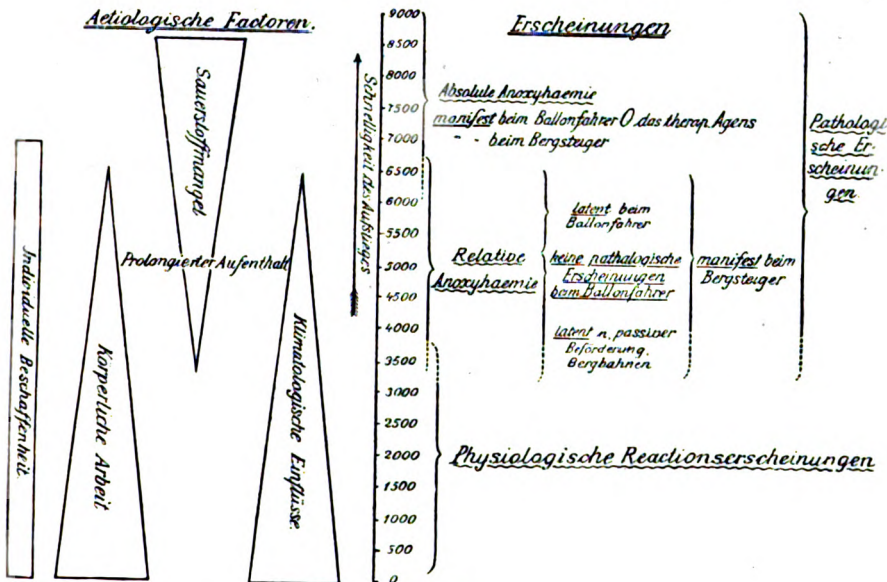 Aetiologische Factoren.
Sauerstoffmangel
Individuelle Beschaffenheit.
Körperliche Arbeit
Prolongierter Aufenthalt
Klimatologische Einflüsse.
Schnelligkeit des Aufstieges
9000
8500
8000
7500
7000
6500
6000
5500
5000
4500
4000
3500
3000
2500
2000
1500
1000
500
0
Erscheinungen
Absolute Anoxyhaemie
manifest beim Ballonfahrer O das therap. Agens
" " beim Bergsteiger
Relative
Anoxyhaemie
latent beim
Ballonfahrer
keine pathologische
Erscheinungen
beim Ballonfahrer
latent n. passiver
Beförderung.
Bergbahnen
manifest beim
Bergsteiger
Pathologi
sche Er-
scheinun-
gen.
Physiologische Reactionserscheinungen